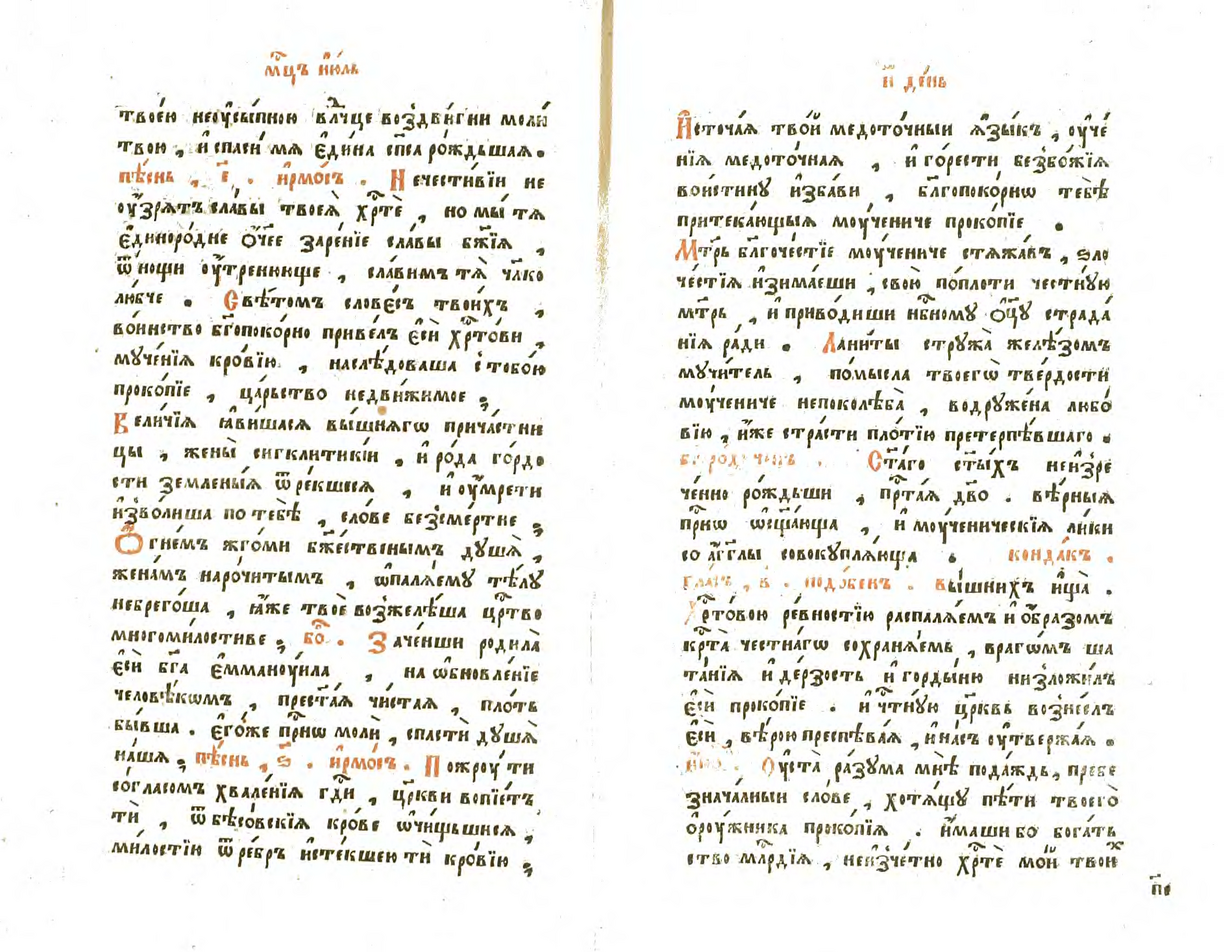 мⷭ҇цъ ню́ль
твоею̀ неоу҆сы́пною влⷣчце воз̾дви́гни моли́
твою̀ , и҆ спаси́ мѧ є҆ди́на сп҃са ро́ждьшаѧ .
пѣ́снь , є҃ . и҆рмо́съ . Н ечести́вїи не
оу҆́зрѧтъ сла́вы твоеѧ̀ хрⷭ҇тѐ , но мы̀ тѧ
є҆диноро́дне ѻ҆́ч҃ее заре́нїе сла́вы бж҃їѧ ,
ѿ но́щи оу҆́тренююще , сла́вимъ тѧ̀ чл҃ко
лю́бче . С вѣ́томъ слове́съ твои́хъ ,
во́инство бг҃опоко́рно приве́лъ є҆сѝ хрⷭ҇то́ви ,
муче́нїѧ кро́вїю , наслѣ́доваша с тобо́ю
проко́пїе , ца́рьство недви́жимое ;
В ели́чїѧ ꙗ҆ви́шасѧ вы́шнѧгѡ прича́стни
цы , жены̀ сигклитики́и , и҆ ро́да го́рдо
сти земле́ныѧ ѿре́кшесѧ , и҆ оу҆мре́ти
и҆зво́лиша по тебѣ̀ , сло́ве безсме́ртне ;
Ѻ҆ гне́мъ жго́ми бж҃е́ственымъ душѧ̀ ,
жена́мъ наро́читымъ , ѡ҆палѧ́ему тѣ́лу
небрего́ша , ꙗ҆́же твоѐ воз̾желѣ́ша црⷭ҇тво
многоми́лостиве ; бо́ . З аче́нши родила̀
є҆сѝ бг҃а є҆ммануи́ла , на ѡ҆бновле́нїе
человѣ́комъ , прест҃аѧ чи́стаѧ , пло́ть
бы́вша . є҆го́же при́сⷭ҇нѡ молѝ , спастѝ душѧ̀
на́шѧ . пѣ́снь , ѕ҃ . и҆рмо́съ . П ожроу́ ти
со гла́сомъ хвале́нїѧ гдⷭ҇и , цр҃кви вопїе́тъ
ти , ѿ бѣсо́вскїѧ кро́ве ѡ҆чи́щьшисѧ ,
ми́лостїю ѿ ре́бръ и҆сте́кшею ти кро́вїю ;
и҃ де́нь
И҆ сточа́ѧ тво́й медото́чныи ѧ҆зы́къ , оу҆че́
нїѧ медото́чнаѧ , и҆ го́рести безбо́жїѧ
вои́стину и҆зба́ви , бл҃гопоко́рнѡ тебѣ̀
притека́ющыѧ моу́чениче проко́пїе .
М т҃рь бл҃гоче́стїе моу́чениче стѧжа́въ , ѕло
че́стїѧ и҆зима́еши , свою̀ по пло́ти че́стную
мт҃рь , и҆ приво́диши нб҃ному ѻ҆ц҃у страда́
нїѧ ра́ди . Л ани́ты стружа̀ желѣ́зомъ
мучи́тель , по́мысла твоегѡ̀ тве́рдости
моу́чениче непоколѣ́ба , водруже́на любо́
вїю , и҆́же стра́сти пло́тїю претерпѣ́вшаго .
С т҃а́го ст҃ы́хъ неи҆зре
че́нно ро́ждьши , прⷭ҇таѧ дв҃о . вѣ́рныѧ
прⷭ҇нѡ ѡ҆сщ҃а́юща , и҆ моу́ченическїѧ ли́ки
со а҆́гг҃лы совокуплѧ́юща . конда́къ .
гла́съ , в҃ . подо́бенъ . вы́шнихъ и҆́ща .
Х рⷭ҇то́вою ре́вностїю распалѧ́емъ и҆ о҆́бразомъ
крⷭ҇та̀ честна́гѡ сохранѧ́емь , врагѡ́мъ ша
та́нїѧ и҆ де́рзость и҆ горды́ню низложи́лъ
є҆сѝ проко́пїе . и҆ чⷭ҇тну́ю цр҃квь воз̾не́слъ
є҆сѝ , вѣ́рою преспѣва́ѧ , и҆ на́съ оу҆тверж́аѧ .
Оу҆ ста̀ ра́зума мнѣ̀ пода́ждь , пребе
знача́лныи сло́ве , хотѧ́щу пѣ́ти твоего̀
ѻ҆роу́жника проко́пїѧ . и҆́маши бо бога́ть
ство млⷭ҇рдїѧ , неи҆зче́тно хрⷭ҇тѐ мо́й твои́х